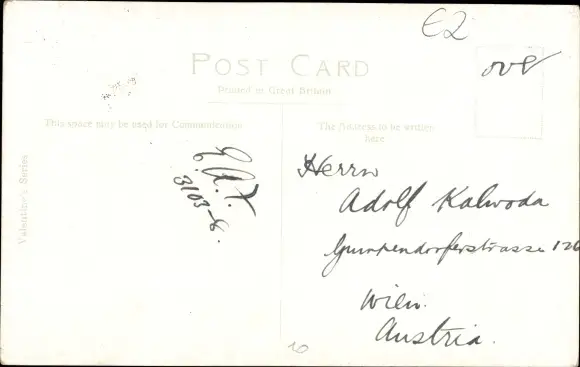 E2
POST CARD
Printed in Great Britain
This space may be used for Communication
The Address to be written
here
Valentine's Series
3103-8.
Herrn
Adolf Kalwoda
Gumpendorferstrasse 126
Wien.
Austria.